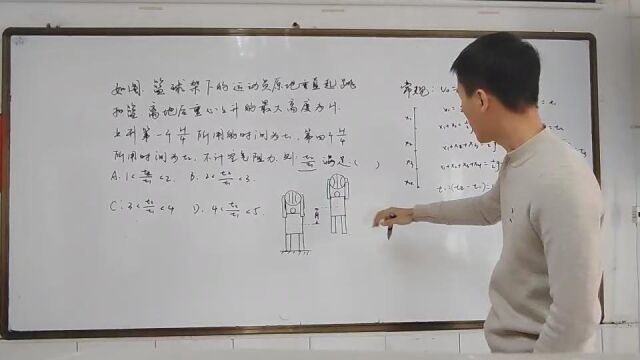 如图,篮球架下的运动员原地垂直起跳
扣篮,离地后重心上升的最大高度为H.
上升第一个H/4所用的时间为t₁,第四个H/4
所用时间为t₂.不计空气阻力,则t₂/t₁满足( )
A. 1<t₂/t₁<2 B. 2<t₂/t₁<3
C. 3<t₂/t₁<4 D. 4<t₂/t₁<5.
常规: V₀=
x₁
x₂
x₃
x₄
x₁+x₂+x₃+x₄=